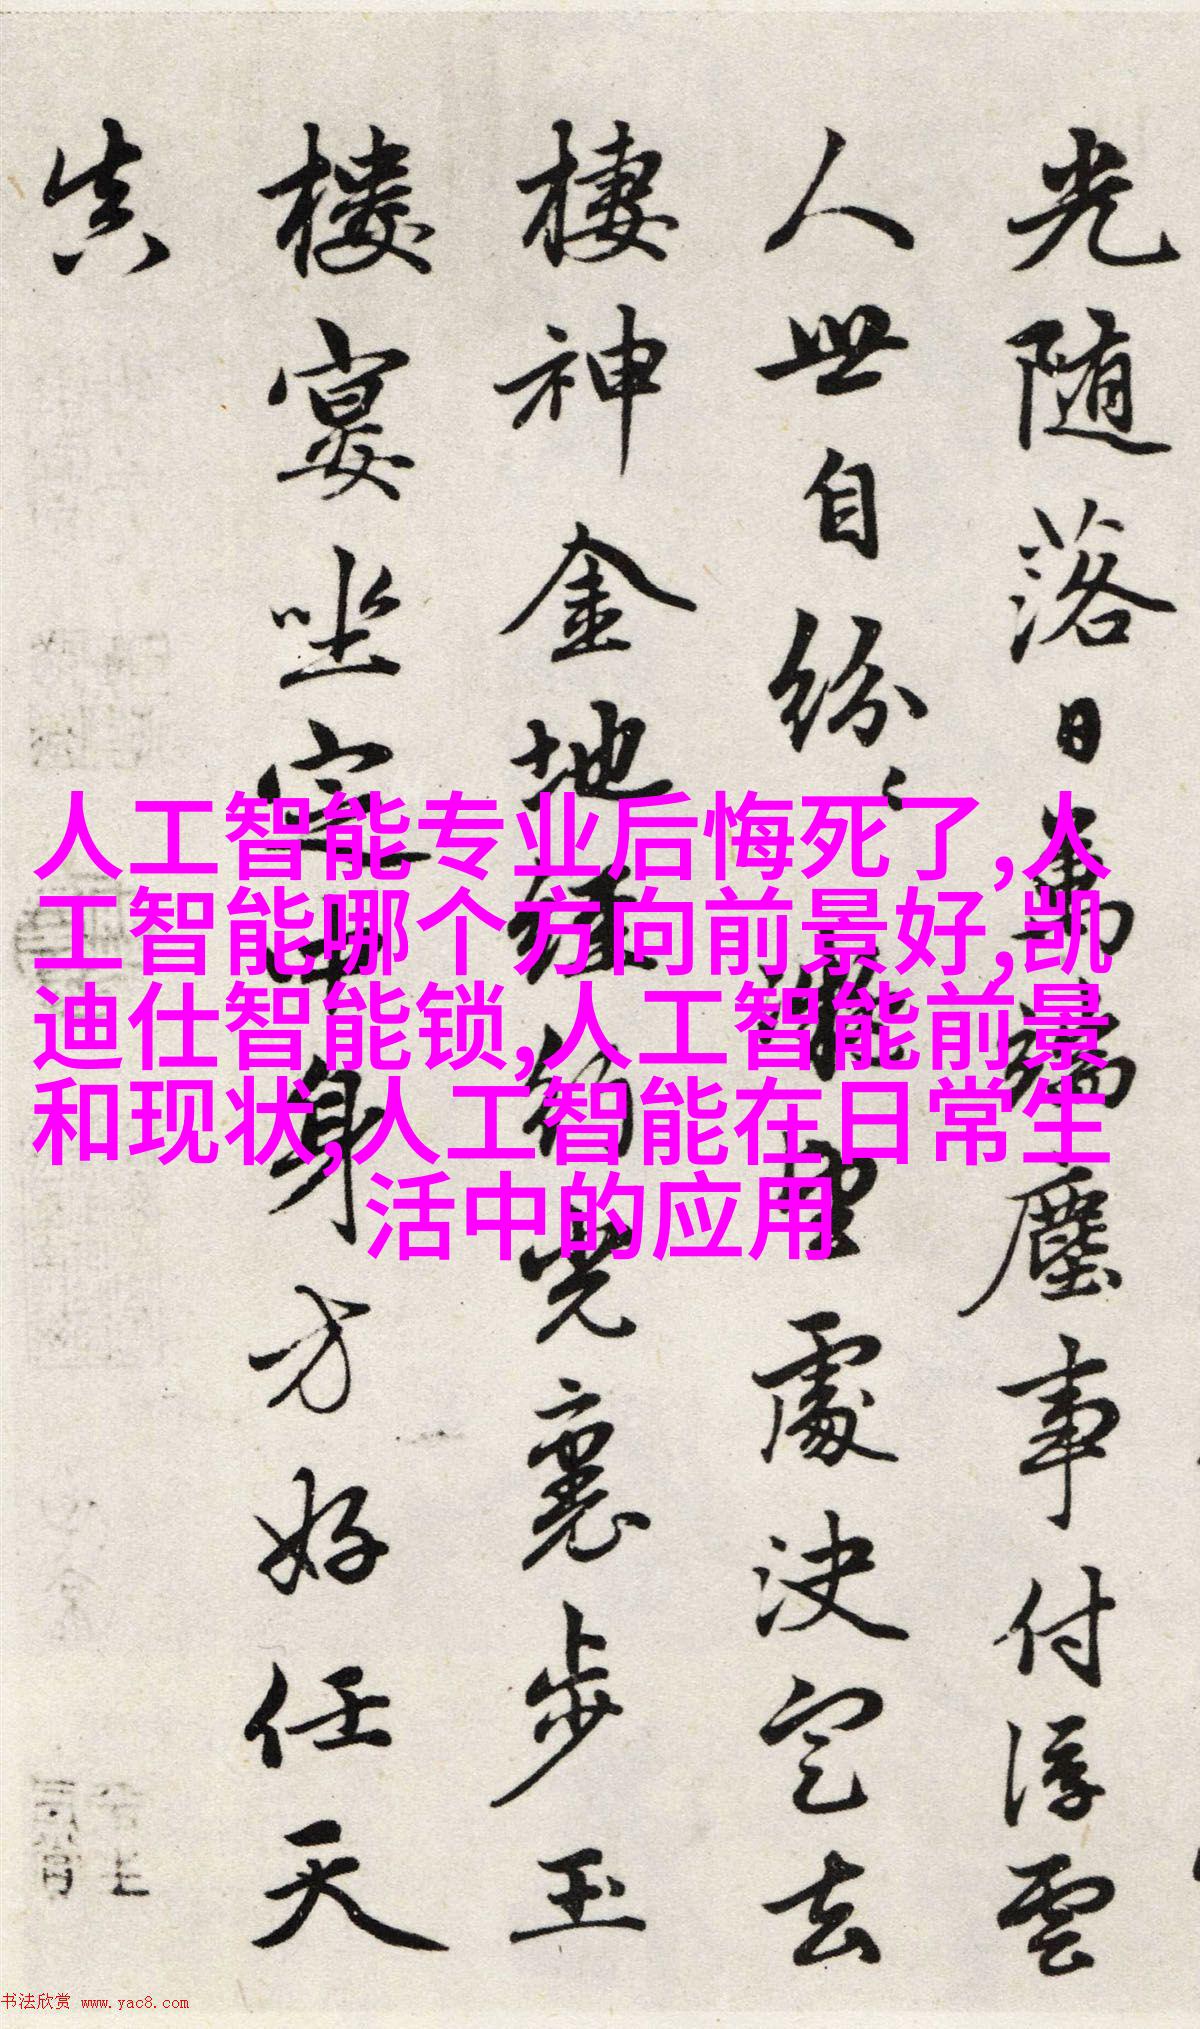 光随落日萬端塵事付浮雲
人世自紛〻處決定去
棲神金地經光裏步玉
樓宴坐定中身方好任天
真
人工智能专业后悔死了,人
工智能哪个方向前景好,凯
迪仕智能锁,人工智能前景
和现状,人工智能在日常生
活中的应用
书法欣赏 www.yac8.com